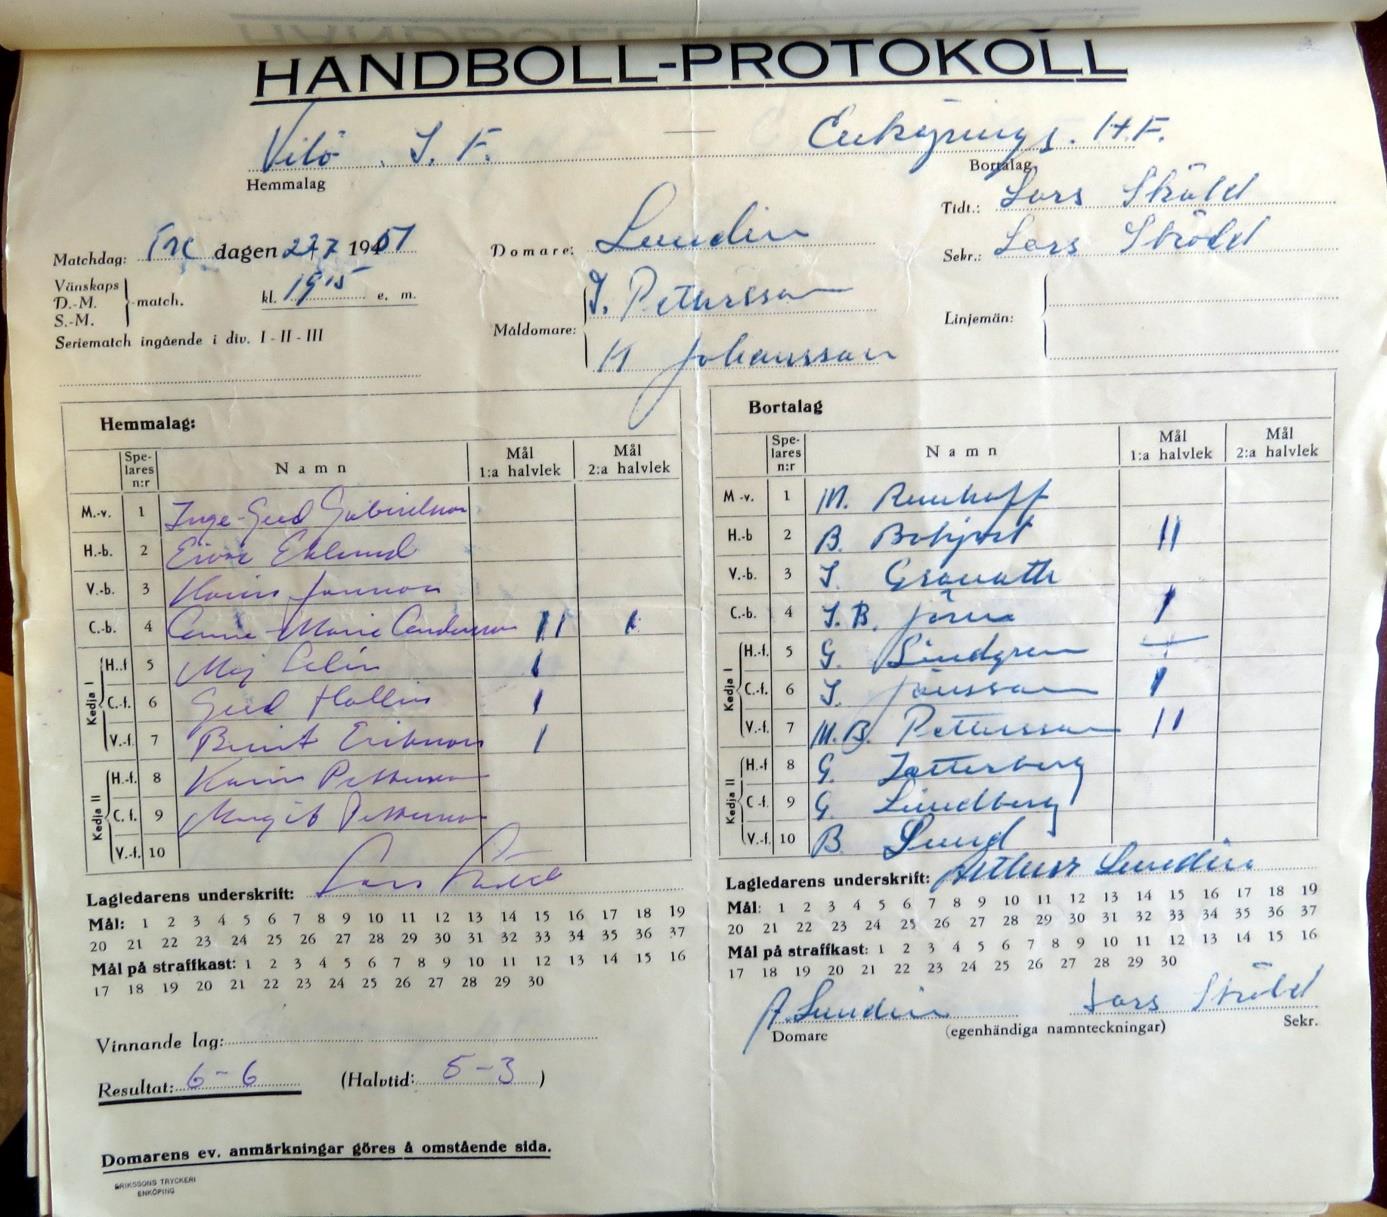 HANDBOLL-PROTOKOLL
Vilö. I. F. — Enköpings. H.F.
Hemmalag Bortalag
Tidt.: Lars Sköld
Matchdag: Fre dagen 27/7 1951 Domare: Lundin Sekr.: Lars Sköld
Vänskaps
D.-M. -match. kl. 19 15 e. m.
S.-M.
Måldomare: I. Pettersson Linjemän:
H Johansson
Seriematch ingående i div. I - II - III
Hemmalag:
Spelares n:r Namn Mål 1:a halvlek Mål 2:a halvlek
M.-v. 1 Inge-Gerd Gabrielsson
H.-b. 2 Eklund
V.-b. 3 Karin Jansson
C.-b. 4 Anne-Marie Andersson II I
Kedja I
H.-f. 5 Maj I
C.-f. 6 Gerd Hallin I
V.-f. 7 Berit Eriksson I
Kedja II
H.-f. 8 Karin Pettersson
C.-f. 9 Margit Pettersson
V.-f. 10
Lagledarens underskrift: Lars Sköld
Mål: 1 2 3 4 5 6 7 8 9 10 11 12 13 14 15 16 17 18 19
20 21 22 23 24 25 26 27 28 29 30 31 32 33 34 35 36 37
Mål på straffkast: 1 2 3 4 5 6 7 8 9 10 11 12 13 14 15 16
17 18 19 20 21 22 23 24 25 26 27 28 29 30
Vinnande lag:
Resultat: 6-6 (Halvtid: 5-3)
Domarens ev. anmärkningar göres å omstående sida.
ERIKSSONS TRYCKERI
ENKÖPING
Bortalag
Spelares n:r Namn Mål 1:a halvlek Mål 2:a halvlek
M-v. 1 M.
H.-b 2 B. II
V.-b. 3 I. Granath
C.-b. 4 I.B. I
Kedja I
H.-f. 5 G. Lindgren
C.-f. 6 I. Jansson I
V.-f. 7 M.B. Pettersson II
Kedja II
H.-f 8 G. Zetterberg
C-f. 9 G. Lundberg
V.-f. 10 B. Lund
Lagledarens underskrift: Arthur Lundin
Mål: 1 2 3 4 5 6 7 8 9 10 11 12 13 14 15 16 17 18 19
20 21 22 23 24 25 26 27 28 29 30 31 32 33 34 35 36 37
Mål på straffkast: 1 2 3 4 5 6 7 8 9 10 11 12 13 14 15 16
17 18 19 20 21 22 23 24 25 26 27 28 29 30
A. Lundin Lars Sköld
Domare (egenhändiga namnteckningar) Sekr.